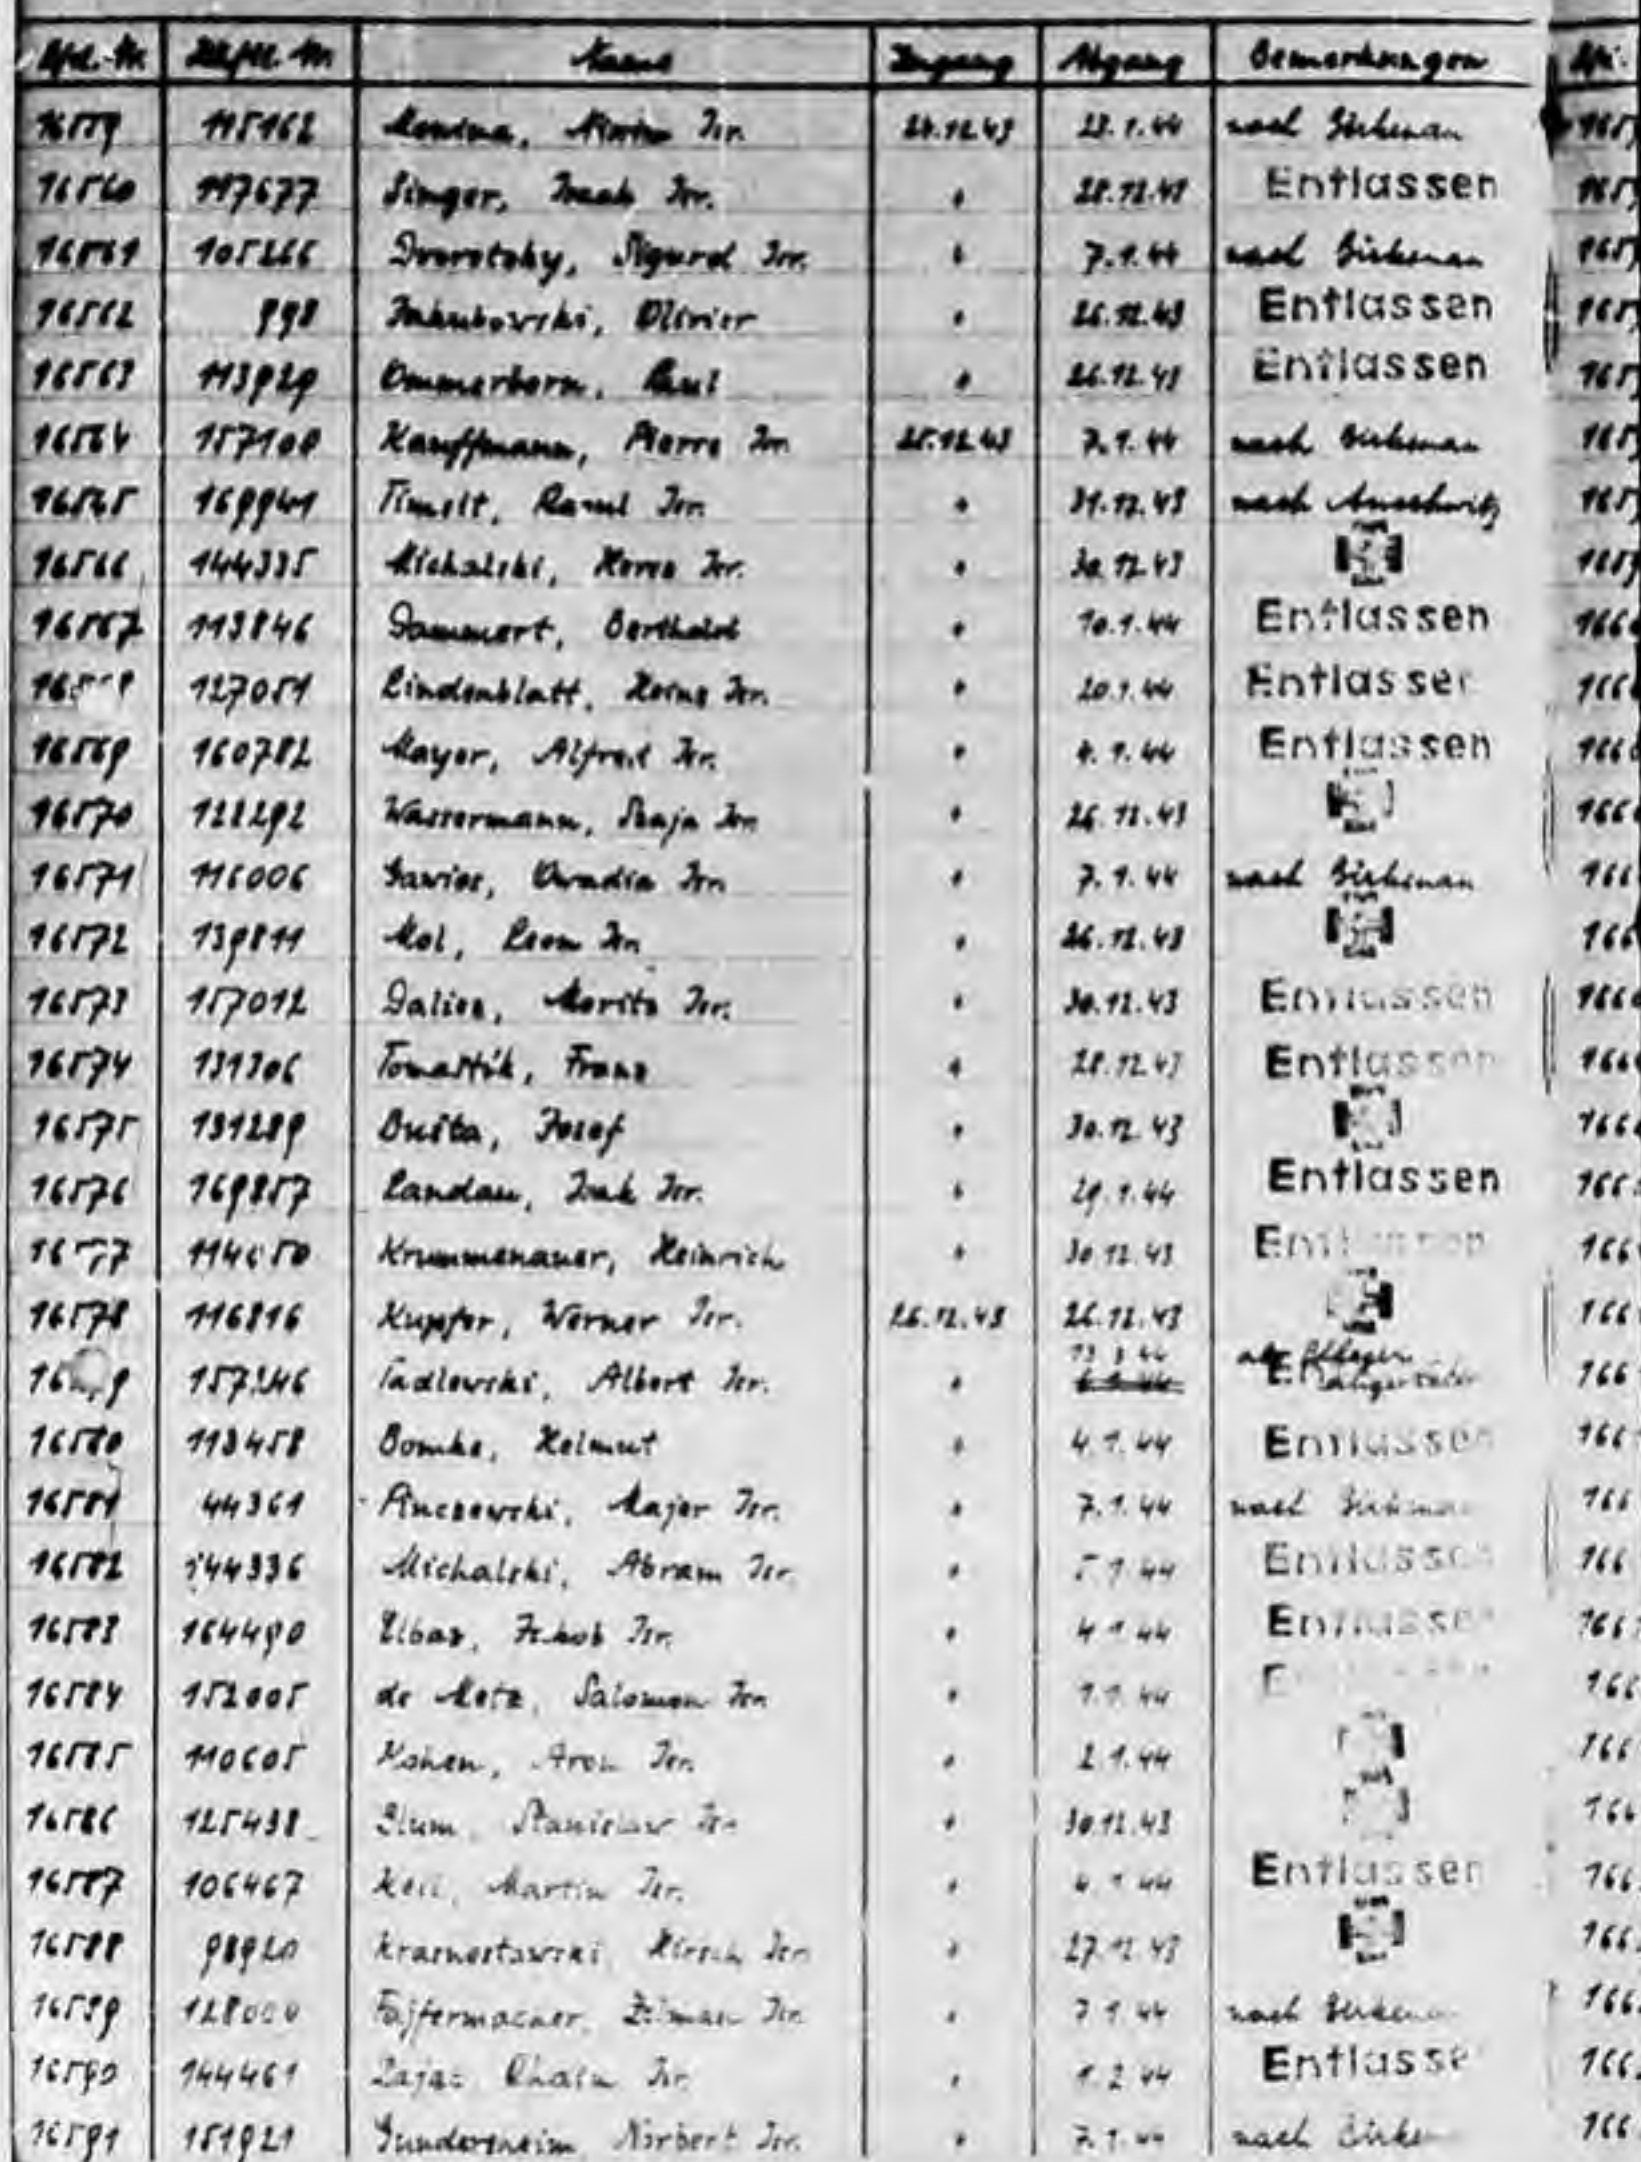 Lfd.-Nr. Häftl.-Nr. Name Zugang Abgang Bemerkungen Lfd.
16559 115162 Isr. 24.12.43 23.1.44 nach Birkenau 1659
16560 117677 Singer, Isaak Isr. " 28.12.43 Entlassen 1659
16561 105266 Dvorotzky, Sigurd Isr. " 7.1.44 nach Birkenau 1659
16562 998 Jakubowski, Olivier " 26.12.43 Entlassen 1659
16563 113929 Ommerborn, Paul " 26.12.43 Entlassen 1659
16564 157100 Kauffmann, Pierre Isr. 25.12.43 7.1.44 nach Birkenau 1659
16565 169941 Isr. " 31.12.43 nach Auschwitz 1659
16566 144335 Michalski, Isr. " 30.12.43 1659
16567 113846 Dammert, Berthold " 10.1.44 Entlassen 166
127051 Lindenblatt, Heinz Isr. " 20.1.44 Entlassen 166
16569 160782 Mayer, Alfred Isr. " 4.1.44 Entlassen 166
16570 128292 Wassermann, Isr. " 26.12.43 166
16571 116006 Isr. " 7.1.44 nach Birkenau 166
16572 139811 Mol, Leon Isr. " 26.12.43 166
16573 157012 Moritz Isr. " 30.12.43 Entlassen 166
16574 131306 Tomaštik, Franz " 28.12.43 Entlassen 166
16575 131289 Bušta, Josef " 30.12.43 166
16576 169857 Landau, Isak Isr. " 29.1.44 Entlassen 166
Krummenauer, Heinrich " 30.12.43 Entlassen 166
16578 116816 Kupfer, Werner Isr. 26.12.43 26.12.43 166
13.3.44 als Pfleger
Tadlewski, Albert Isr. " 166
16580 113458 Bomke, Helmut " 4.1.44 Entlassen 166
16581 44361 Pinczewski, Majer Isr. " 7.1.44 nach Birkenau 166
16582 144336 Michalski, Abram Isr. " 5.1.44 Entlassen 166
16583 164490 Elbaz, Jakob Isr. " 4.1.44 Entlassen 166
16584 152005 de Metz, Salomon Isr. " 1.1.44 166
16585 110605 Kohen, Aron Isr. " 2.1.44 166
16586 125438 Stanislaw Isr. " 30.12.43 166
16587 106467 Keil, Martin Isr. " 4.1.44 Entlassen 166
16588 98920 Krasnostawski, Hirsch Isr. " 27.12.43 166
16589 Fajfermacher, Isr. " 7.1.44 nach Birkenau 166
16590 144461 Zajac, Chaim Isr. " 1.2.44 Entlassen 166
16591 151921 Gundersheim, Norbert Isr. " 7.1.44 nach Birke 166